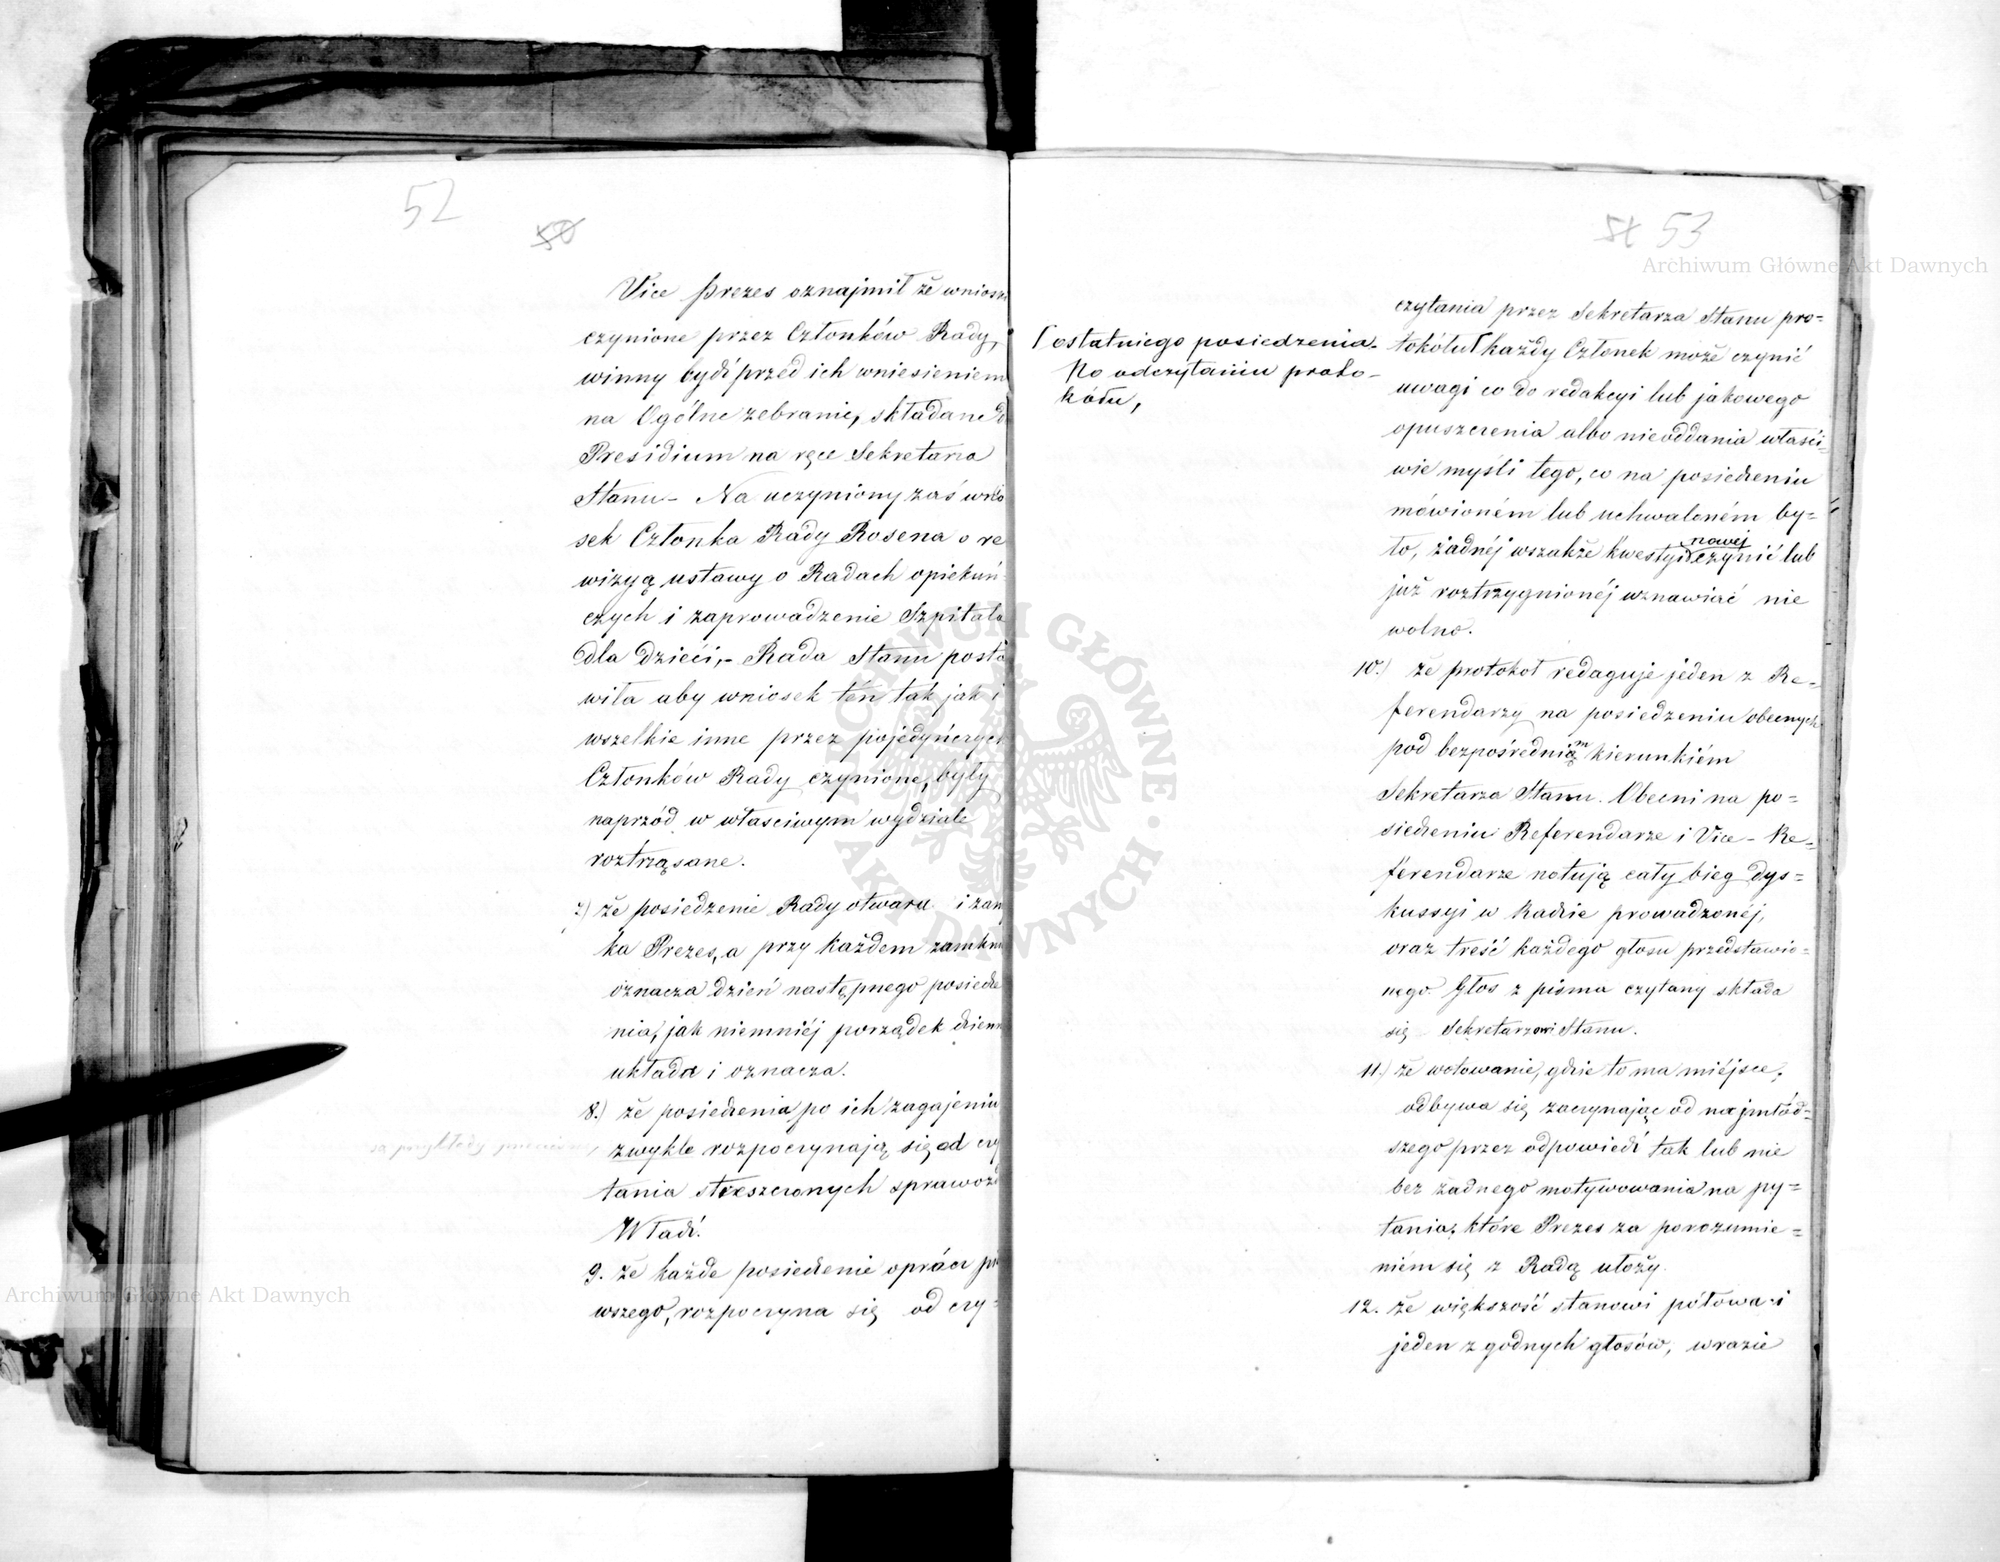 52
50
Vice prezes oznajmił że wniosk
czynione przez Członków Rady,
winny bydź przed ich wniesieniem
na Ogólne zebranie, składane d
Presidium na ręce Sekretarza
Stanu – Na uczyniony zaś wnio
sek Członka Rady Rosena o re
wizyą ustawy o Radach opiekuń
czych i zaprowadzenie Szpitala
dla dzieći,– Rada Stanu posta
wiła aby wniosek tén tak jak i
wszelkie inne przez pojedyńczych
Członków Rady czynione, były
naprzód w właściwym wydziale
roztrząsane.
7) że posiedzenie Rady otwiera i zam
ka Prezes, a przy każdem zamkni
oznacza dzień następnego posiedze
nia, jak niemniéj porządek dzienn
układa i oznacza.
8.) że posiedzenia po ich zagajeniu
zwykle rozpoczynają się od czy
tania streszczonych sprawozd
Władź.
9. że każde posiedzenie oprócz pi
wszego, rozpoczyna się od czy-
51 53
czytania przez Sekretarza Stanu pro=
tokółu⌈ każdy Członek może czynić
⌈ ostatniego posiedzenia.
Po odczytaniu proto-
kółu,
uwagi co do redakcyi lub jakowego
opuszczenia albo nieoddania właści=
wie myśli tego, co na posiedzeniu
mówioném lub uchwaloném by=
ło, żadnéj wszakże kwestyi nowéj czynić lub
już roztrzygnionéj wznawiać nie
wolno.
10.) że protokół redaguje jeden z Re=
ferendarzy na posiedzeniu obecnych
pod bezpośrednim kierunkiém
Sekretarza Stanu. Obecni na po=
siedzeniu Referendarze i Vice-Re=
ferendarze notują cały bieg dys=
kussyi w Radzie prowadzonéj,
oraz treść każdego głosu przedstawio=
nego. Głos z pisma czytany składa
się Sekretarzowi Stanu.
11.) że wotowanie, gdzie to ma miéjsce,
odbywa się zaczynając od najmłod=
szego przez odpowiedź tak lub nie
bez żadnego motywowania na py=
tania, które Prezes za porozumie=
niém się z Radą ułoży.
12. że większość stanowi połowa i
jeden zgodnych głosów, w razie
Archiwum Główne Akt Dawnych
Archiwum Główne Akt Dawnych
ARCHIWUM GŁÓWNE AKT DAWNYCH